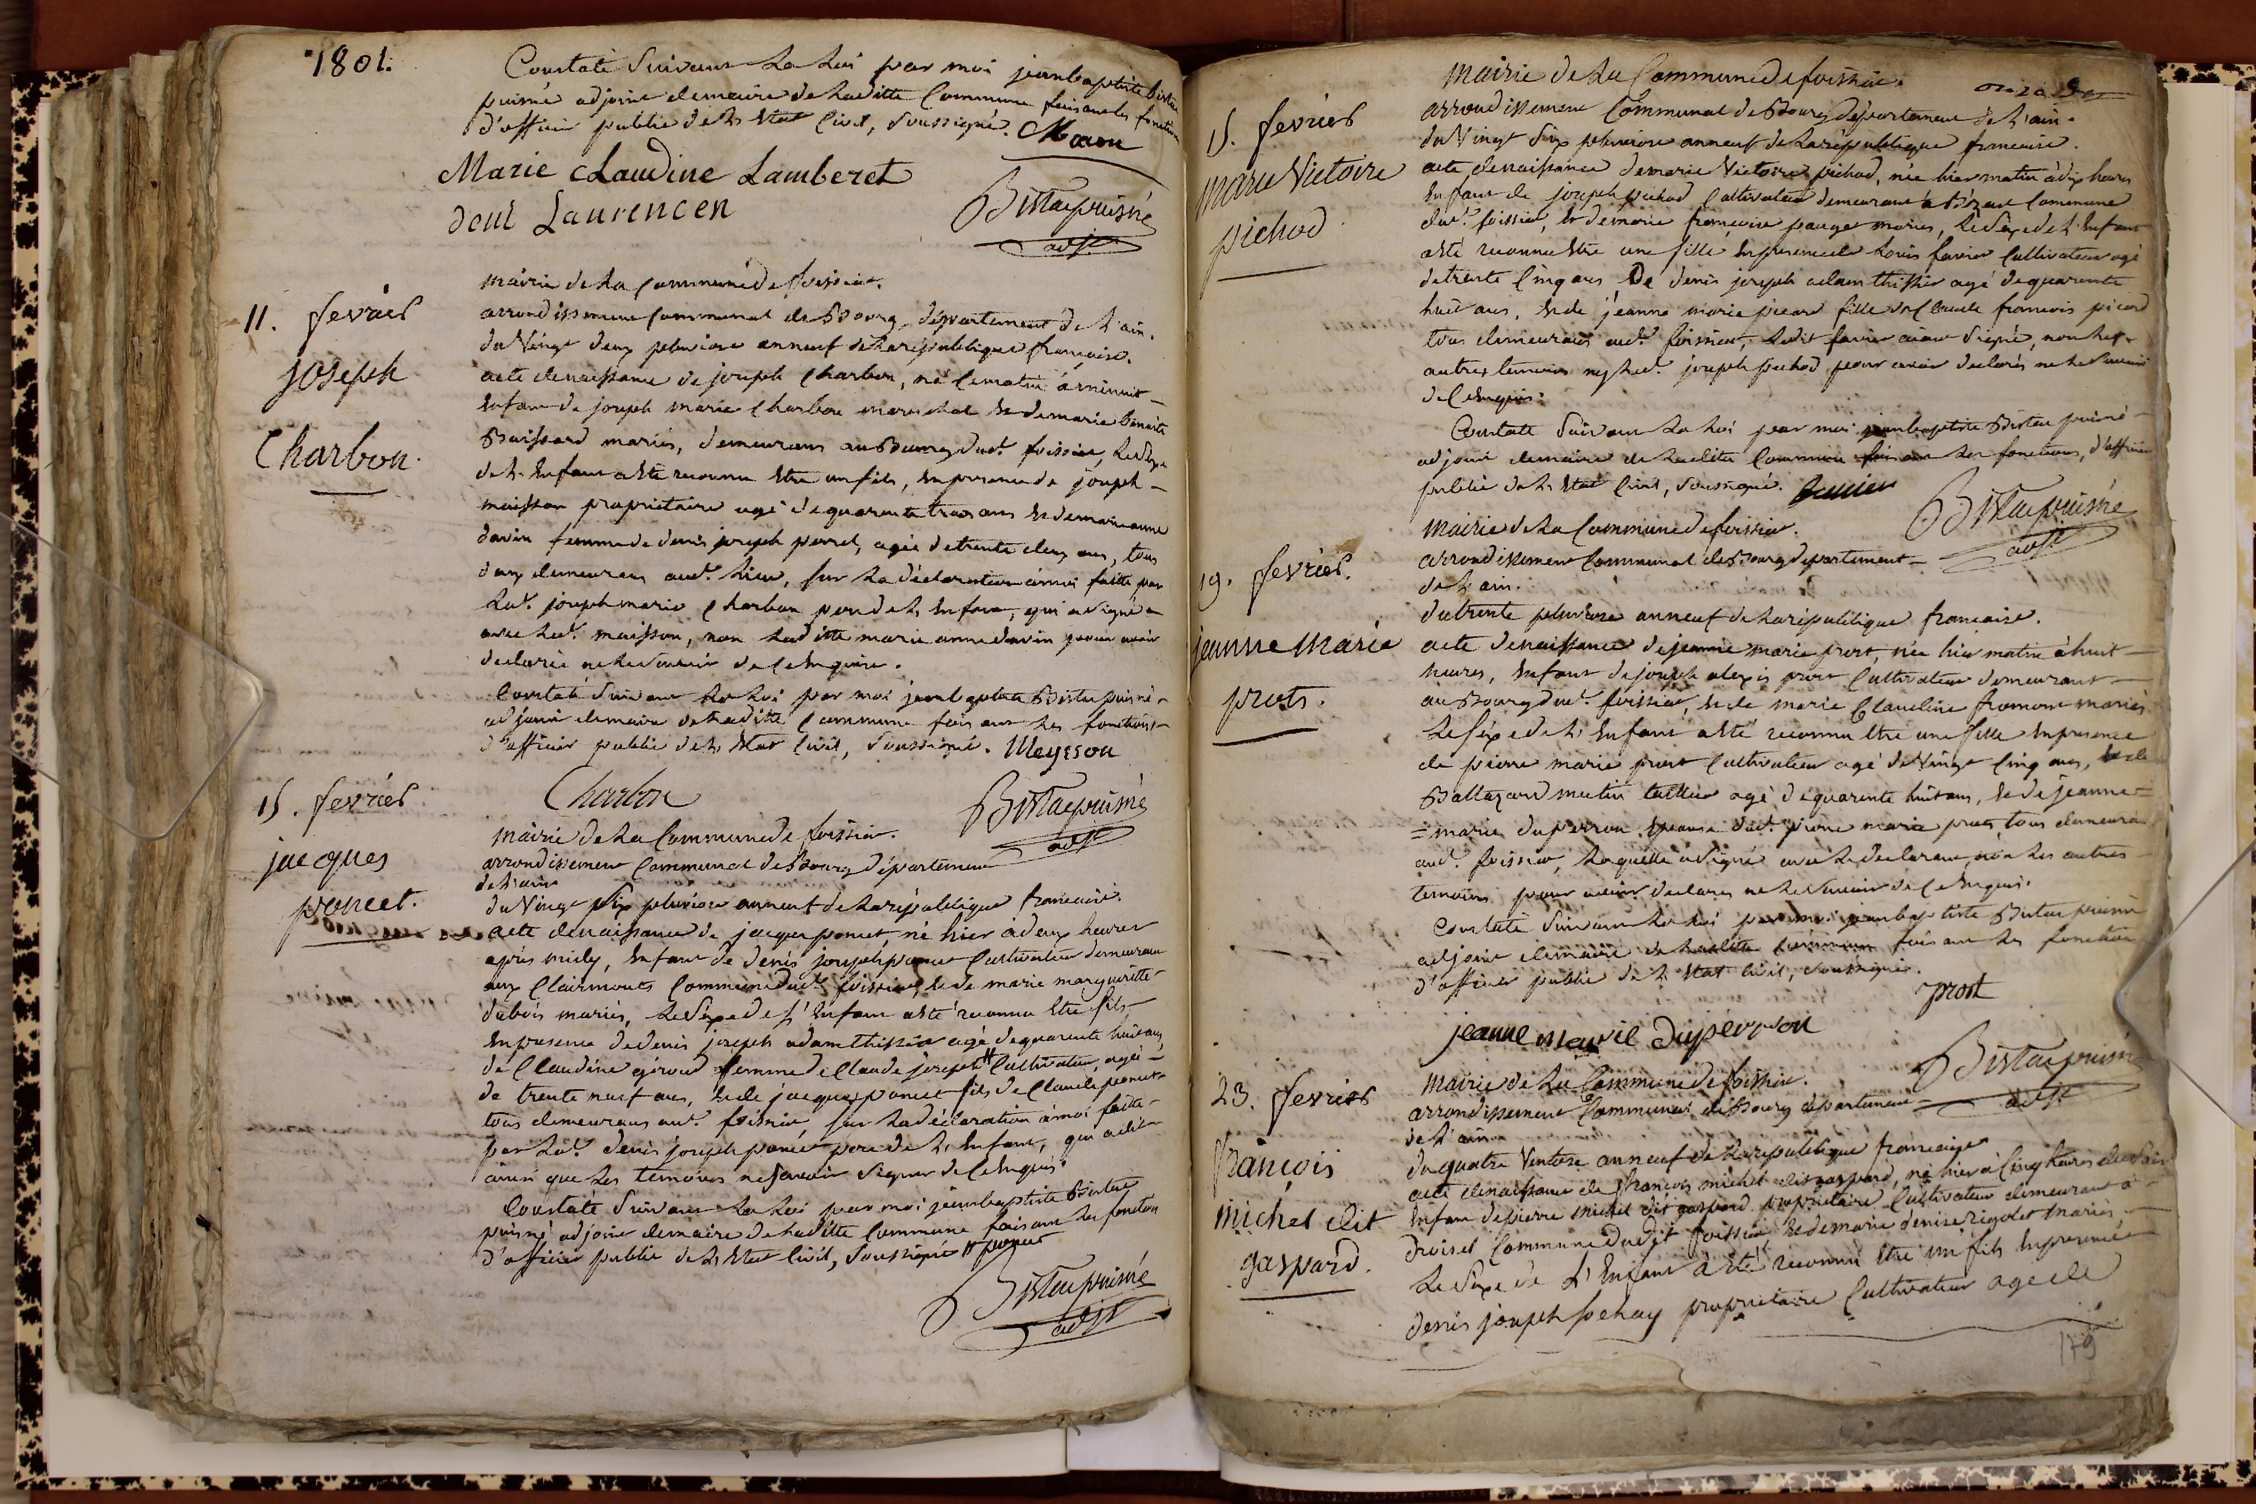 1801.
Constaté Suivant La Loi par moi jeanbaptiste Bistac
puisné adjoint demaire de Laditte Commune faisant les fonctions
d'officier public de L'Etat Civil, Soussigné.
Marie Claudine Lamberet
Laurencen
Bistac puisné
adjt
11. fevrier
joseph
Charbon.
mairie de La Commune de foissiat.
arrondissement Communal de Bourg, département de L'ain.
du Vingt deux pluviose an neuf de La république françoise.
acte de naissance de joseph Charbon, né Cematin à minuit
Enfant de joseph marie Charbon marechal Et demarie benoite
Buissard mariés, demeurans au Bourg dud.t foissiat, Le Sexe
de L'Enfant a Eté reconnu Etre un fils, En presence de joseph
maisson propriétaire agé de quarente trois ans Et demarianne
davin femme de denis joseph perret, agée de trente deux ans, tous
deux demeurans aud.t Lieu, Sur La déclaration à moi faitte par
Led.t joseph marie Charbon pere de L'Enfant, qui a Signé
avec Led.t maisson, non Laditte marie anne davin pour avoir
declaré ne Le Savoir de Ce Enquise.
Constaté Suivant La Loi par moi jeanbaptiste Bistac puisné
adjoint demaire de Laditte Commune faisant Les fonctions
d'officier public de L'Etat Civil, Soussigné. Meysson
Charbon
Bistac puisné
adjt
15. fevrier
jacques
poncet.
mairie de La Commune de foissiat.
arrondissement Communal de Bourg département
de L'ain
du Vingt Six pluviose an neuf de La république francoise.
acte de naissance de jacques poncet, né hier à deux heures
après midy, Enfant de denis joseph poncet Cultivateur demeurant
aux Clairmonts Commune dud.t foissiat, Et de marie margueritte
dubois mariés, Le Sexe de L'Enfant a Eté reconnu Etre fils
En presence de denis joseph adam thissier agé de quarente huit ans
de Claudine giroud femme de Claude joseph # Cultivateur, agée
de trente neuf ans, Et de jacques poncet fils de Claude poncet
tous demeurans aud.t foissiat, Sur La déclaration à moi faitte
par Led.t denis joseph poncet pere de L'Enfant, qui a dit
ainsi que Les temoins ne Savoir Signer de Ce Enquis.
Constaté Suivant La Loi par moi jeanbaptiste Bistac
puisné adjoint demaire de Laditte Commune faisant Les fonction
d'officier public de L'Etat Civil, Soussigné # poncet
Bistac puisné
adjt
15. fevrier
marie Victoire
pichod
mairie de La Commune de foissiat.
arrondissement Communal de Bourg département de L'ain.
du Vingt Six pluviose an neuf de La république francoise.
acte de naissance de marie Victoire pichod, née hier matin à dix heures
Enfant de joseph pichod Cultivateur demeurant à Commune
dud.t foissiat, Et de marie françoise pauget mariés, Le Sexe de L'Enfant
a Eté reconnu Etre une fille En presence de Louis favier Cultivateur agé
de trente Cinq ans De denis joseph adam thissier agé de quarente
huit ans, Et de jeanne marie picard fille de Claude francois picard
tous demeurans aud.t foissiat, Ledit favier aiant Signé, non Les
autres temoins ny Led.t joseph pichod pour avoir declarés ne Le Savoir
de Ce Enquis.
Constaté Suivant La Loi par moi jeanbaptiste Bistac puisné
adjoint demaire de Laditte Commune faisant Les fonctions, d'officier
public de L'Etat Civil, Soussigné. favier
Bistac puisné
adjt
19. fevrier.
jeanne Marie
prost.
mairie de La Commune de foissiat.
arrondissement Communal de Bourg département
de L'ain.
du trente pluviose an neuf de La république francoise.
acte de naissance de jeanne marie prost, née hier matin à huit
heures, Enfant de joseph alexis prost Cultivateur demeurant
au Bourg dud.t foissiat, Et de marie Claudine fromont mariés
Le Sexe de L'Enfant a Eté reconnu Etre une fille En presence
de pierre marie prost Cultivateur agé de Vingt Cinq ans, de
Baltazard mutin tailleur agé de quarente huit ans, Et de jeanne
marie duperron Epouse dud.t pierre marie prost, tous demeurans
aud.t foissiat, Laquelle a Signé avec Le declarant, non Les autres
temoins pour avoir declarés ne Le Savoir de Ce Enquis.
Constaté Suivant La Loi par moi jeanbaptiste Bistac puisné
adjoint demaire de Laditte Commune faisant Les fonctions
d'officier public de L'Etat Civil, Soussigné.
prost
jeanne marie duperron
Bistac puisné
adjt
23. fevrier
françois
michel dit
gaspard.
Mairie de La Commune de foissiat.
arrondissement Communal de Bourg département
de L'ain
du quatre Ventose an neuf de La république francoise
acte de naissance de françois michel dit gaspard, né hier à Cinq heures du Soir
Enfant de pierre michel dit gaspard propriétaire Cultivateur demeurant à
Droiset Commune dudit foissiat Et de marie denise rigolet mariés
Le Sexe de L'Enfant a Eté reconnu Etre un fils En presence
denis joseph pehay propriétaire Cultivateur age de
179